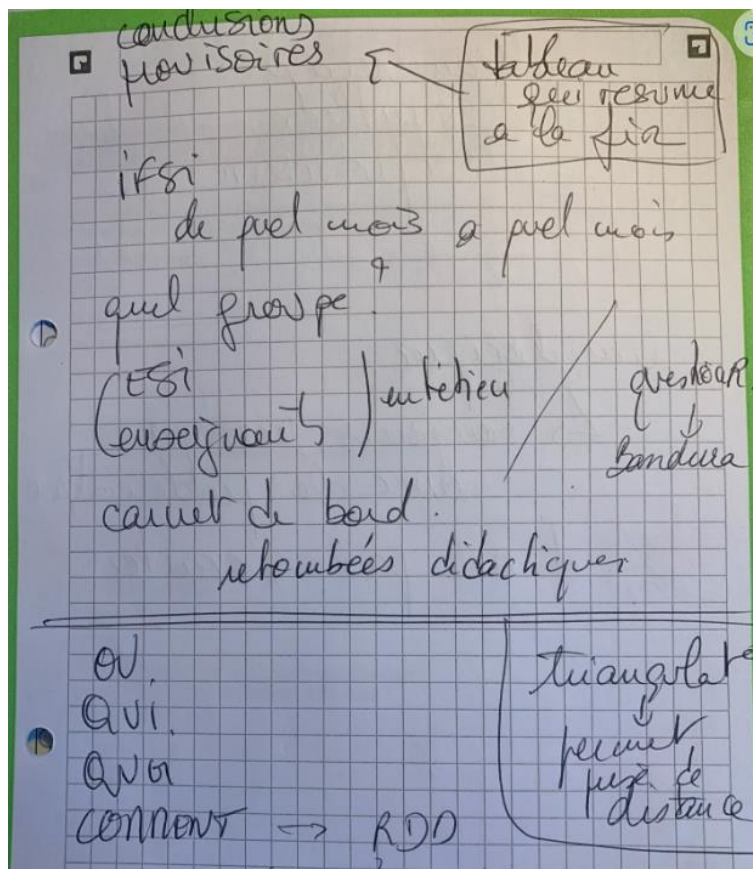 conclusions
provisoires
tableau
qui resume
a la fin
ifsi
de quel mois a quel mois
quel groupe
(ESI
(enseignants
) entretien
questionR
Bandura
carnet de bord.
retombées didactiques
OU.
QUI.
QUOI
COMMENT → RDD
triangulat°
permet
prise de
distance